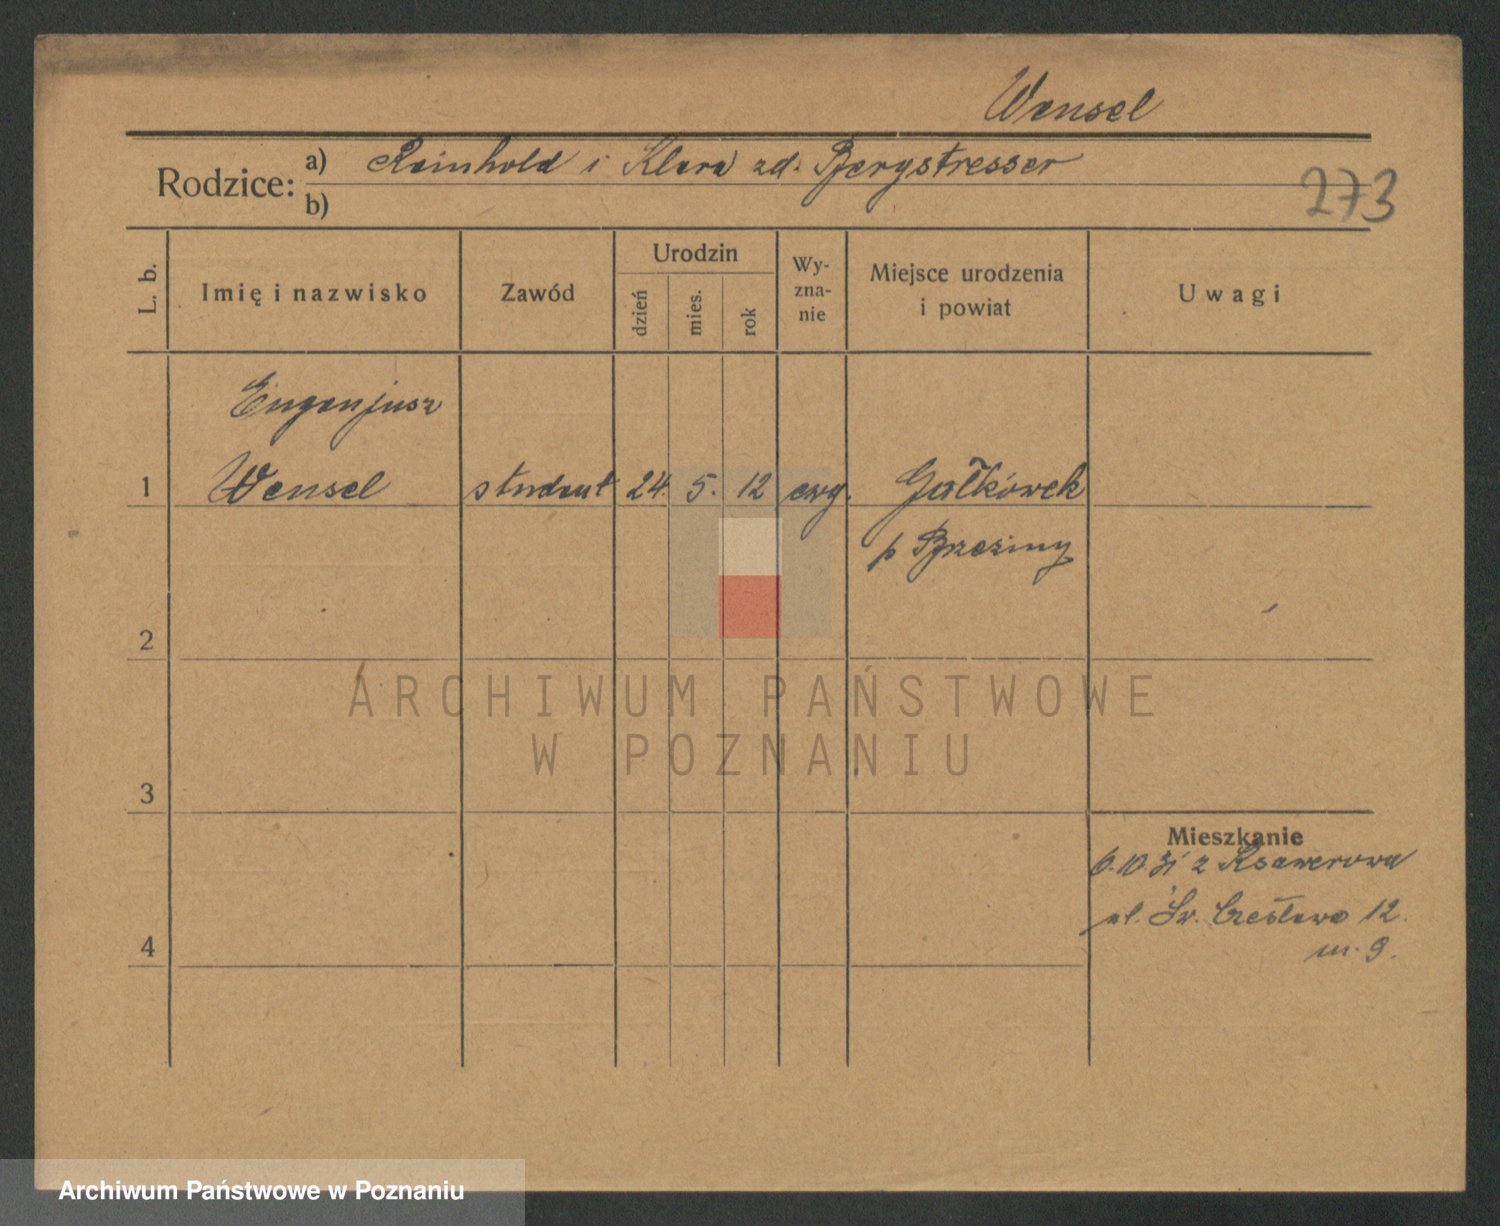 Wensel
Rodzice: a) Reinhold i Klara zd. Bergstresser
b)
273
L. b.
Imię i nazwisko
Zawód
Urodzin
dzień
mies.
rok
Wy-
zna-
nie
Miejsce urodzenia
i powiat
Uwagi
Eugenjusz
1 Wensel student 24. 5. 12 ewg. Gałkówek
p Brzeziny
2
ARCHIWUM PAŃSTWOWE
W POZNANIU
3
Mieszkanie
6.10 31 z Ksawerowa
ul. Św. Czesława 12.
4
m. 9.
Archiwum Państwowe w Poznaniu